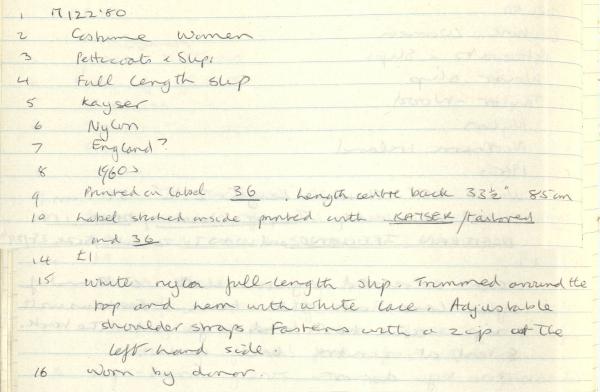 1 M122:80
2 Costume Women
3 Petticoats & Slips
4 Full length slip
5 Kayser
6 Nylon
7 England?
8 1960s
9 Printed on label 36 . Length centre back 33½" 85cm
10 Label stitched inside printed with KAYSER / Tailored
and 36
14 £1
15 White nylon full-length slip. Trimmed around the
top and hem with white lace. Adjustable
shoulder straps Fastens with a zip at the
left-hand side.
16 Worn by donor.